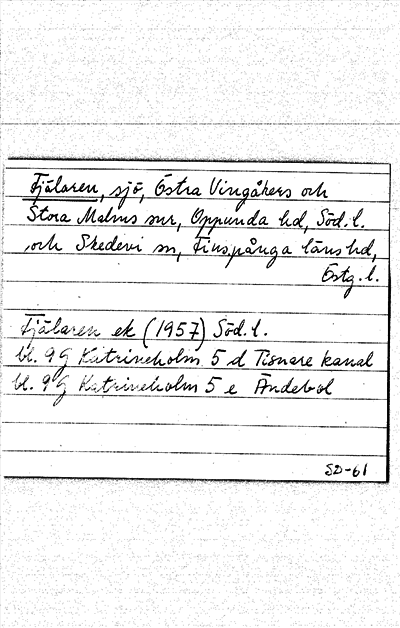 Fjälaren, sjö, Östra Vingåkers och
Stora Malms snr, Oppunda hd, Söd. l.
och Skedevi sn, Finspånga läns hd,
Östg. l.
Fjälaren ek (1957) Söd. l.
bl. 9 G Katrineholm 5 d Tisnare kanal
bl. 9 G Katrineholm 5 e Ändebol
SD-61